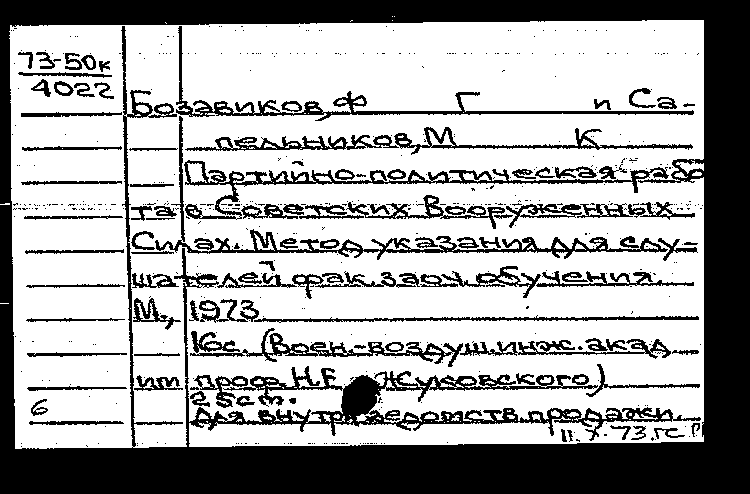 73-50к
4022
Бозавиков, Ф Г и Са-
пельников, М К
Партийно-политическая рабо
та в Советских Вооруженных
Силах. Метод указания для слу-
шателей фак. заоч. обучения.
М., 1973
16с. (Воен.-воздуш. инж. акад
им проф. Н.Е Жуковского)
25см.
6
Для внутриведомств. продажи.
11. X. 73. гс